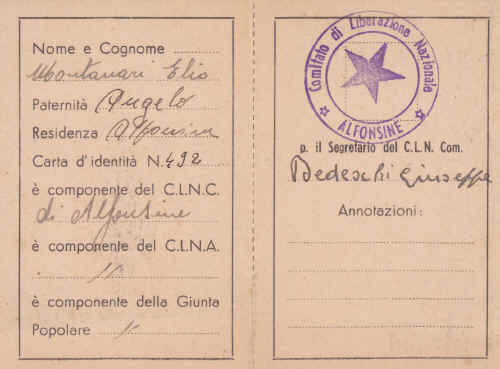 Nome e Cognome
Montanari Elio
Paternità Angelo
Residenza Alfonsine
Carta d'identità N. 492
è componente del C.L.N.C.
di Alfonsine
è componente del C.L.N.A.
è componente della Giunta
Popolare
Comitato di Liberazione Nazionale
ALFONSINE
p. il Segretario del C.L.N. Com.
Bedeschi Giuseppe
Annotazioni: